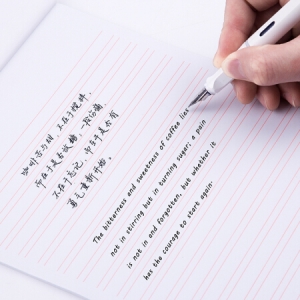 咖啡苦与甜,不在于搅拌,
而在于是否放糖;一段伤痛,
不在于忘记,而在于是否有
勇气重新开始。
The bitterness and sweetness of coffee lies
not in stirring but in turning sugar; a pain
is not in and forgotten, but whether it
has the courage to start again.